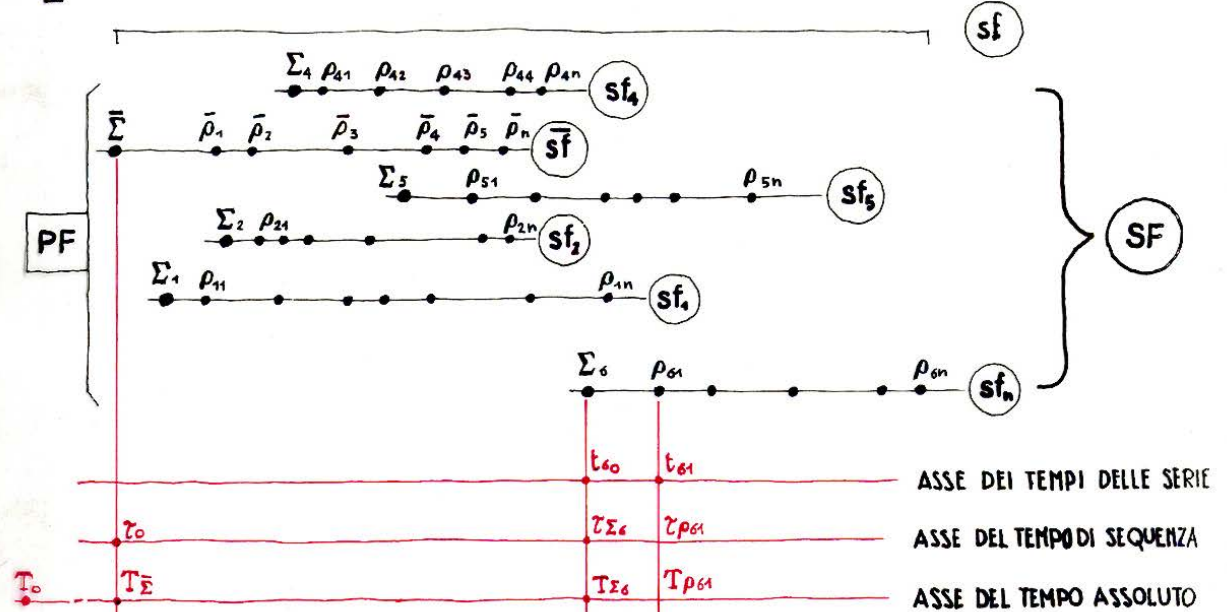 sf
Σ₄ ρ₄₁ ρ₄₂ ρ₄₃ ρ₄₄ ρ₄ₙ sf₄
Σ̄̄ ρ̄₁ ρ̄₂ ρ̄₃ ρ̄₄ ρ̄₅ ρ̄ₙ s̄f̄
Σ₅ ρ₅₁ ρ₅ₙ sf₅
PF Σ₂ ρ₂₁ ρ₂ₙ sf₂ SF
Σ₁ ρ₁₁ ρ₁ₙ sf₁
Σ₆ ρ₆₁ ρ₆ₙ sfₙ
t₆₀ t₆₁ ASSE DEI TEMPI DELLE SERIE
τ₀ τΣ₆ τρ₆₁ ASSE DEL TEMPO DI SEQUENZA
T₀ TΣ̄ TΣ₆ Tρ₆₁ ASSE DEL TEMPO ASSOLUTO